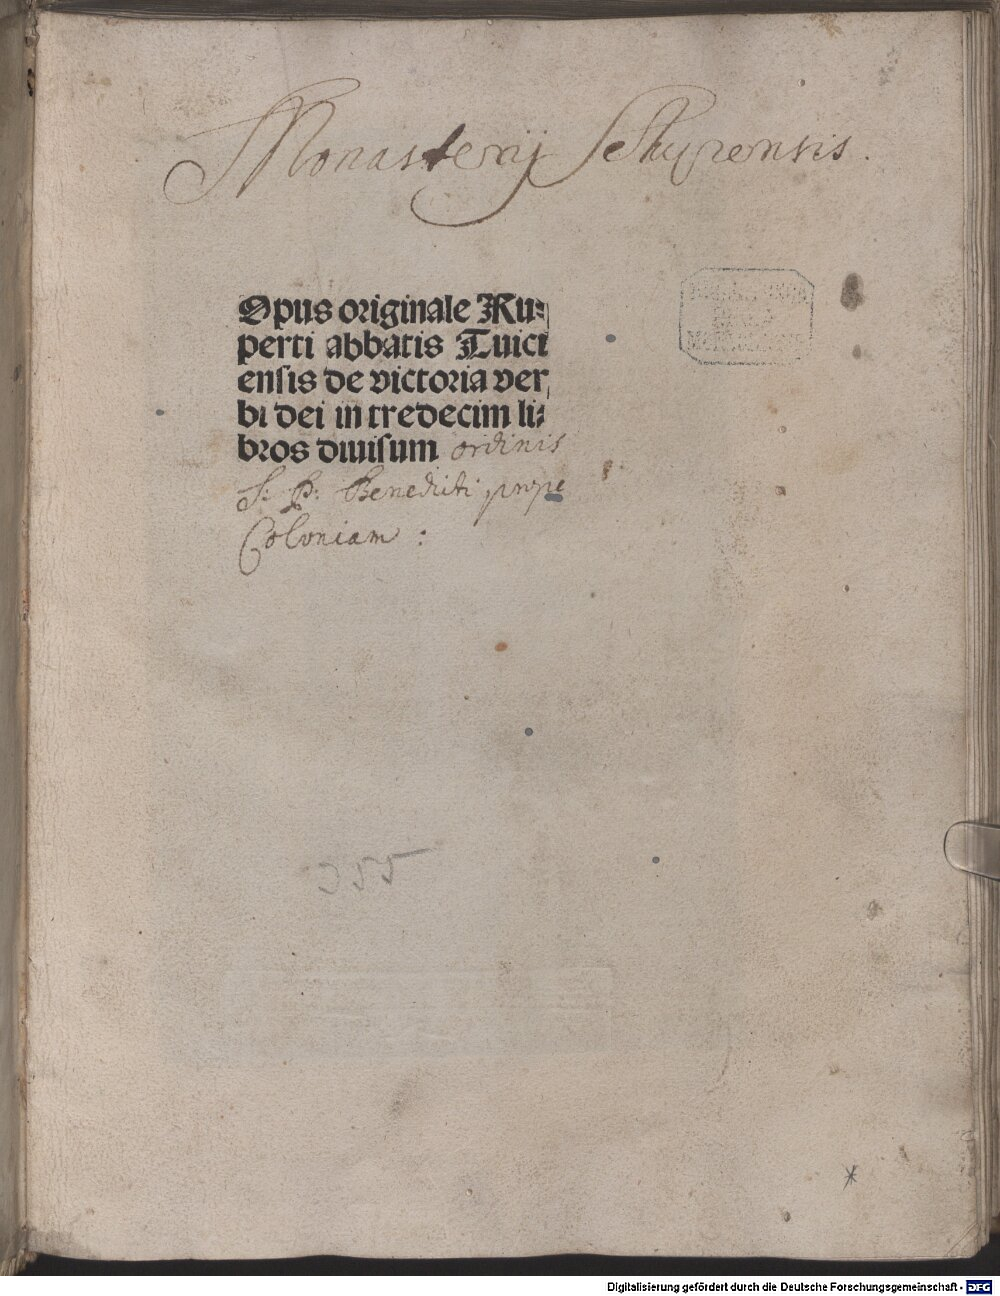 Monasterij Schyrensis.
Opus originale Ru⸗
perti abbatis Tuici
ensis de victoria ver
bi dei in tredecim li⸗
bros diuisum ordinis
S: P: Benedicti prope
Coloniam :
355
*
Digitalisierung gefördert durch die Deutsche Forschungsgemeinschaft - DFG